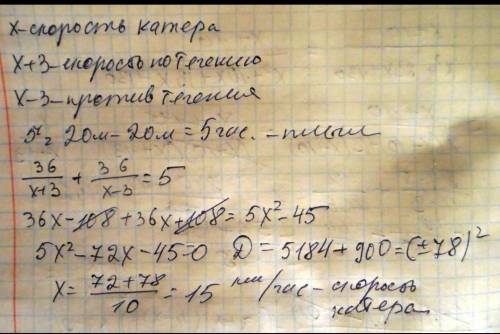 х-скорость катера
х+3-скорость по течению
х-3-против течения
5ч 20м-20м=5час.-плыл
36/(х+3) + 36/(х-3) = 5
36х-108+36х+108=5х²-45
5х²-72х-45=0 D=5184+900=(±78)²
х=(72+78)/10=15 км/час-скорость
катера